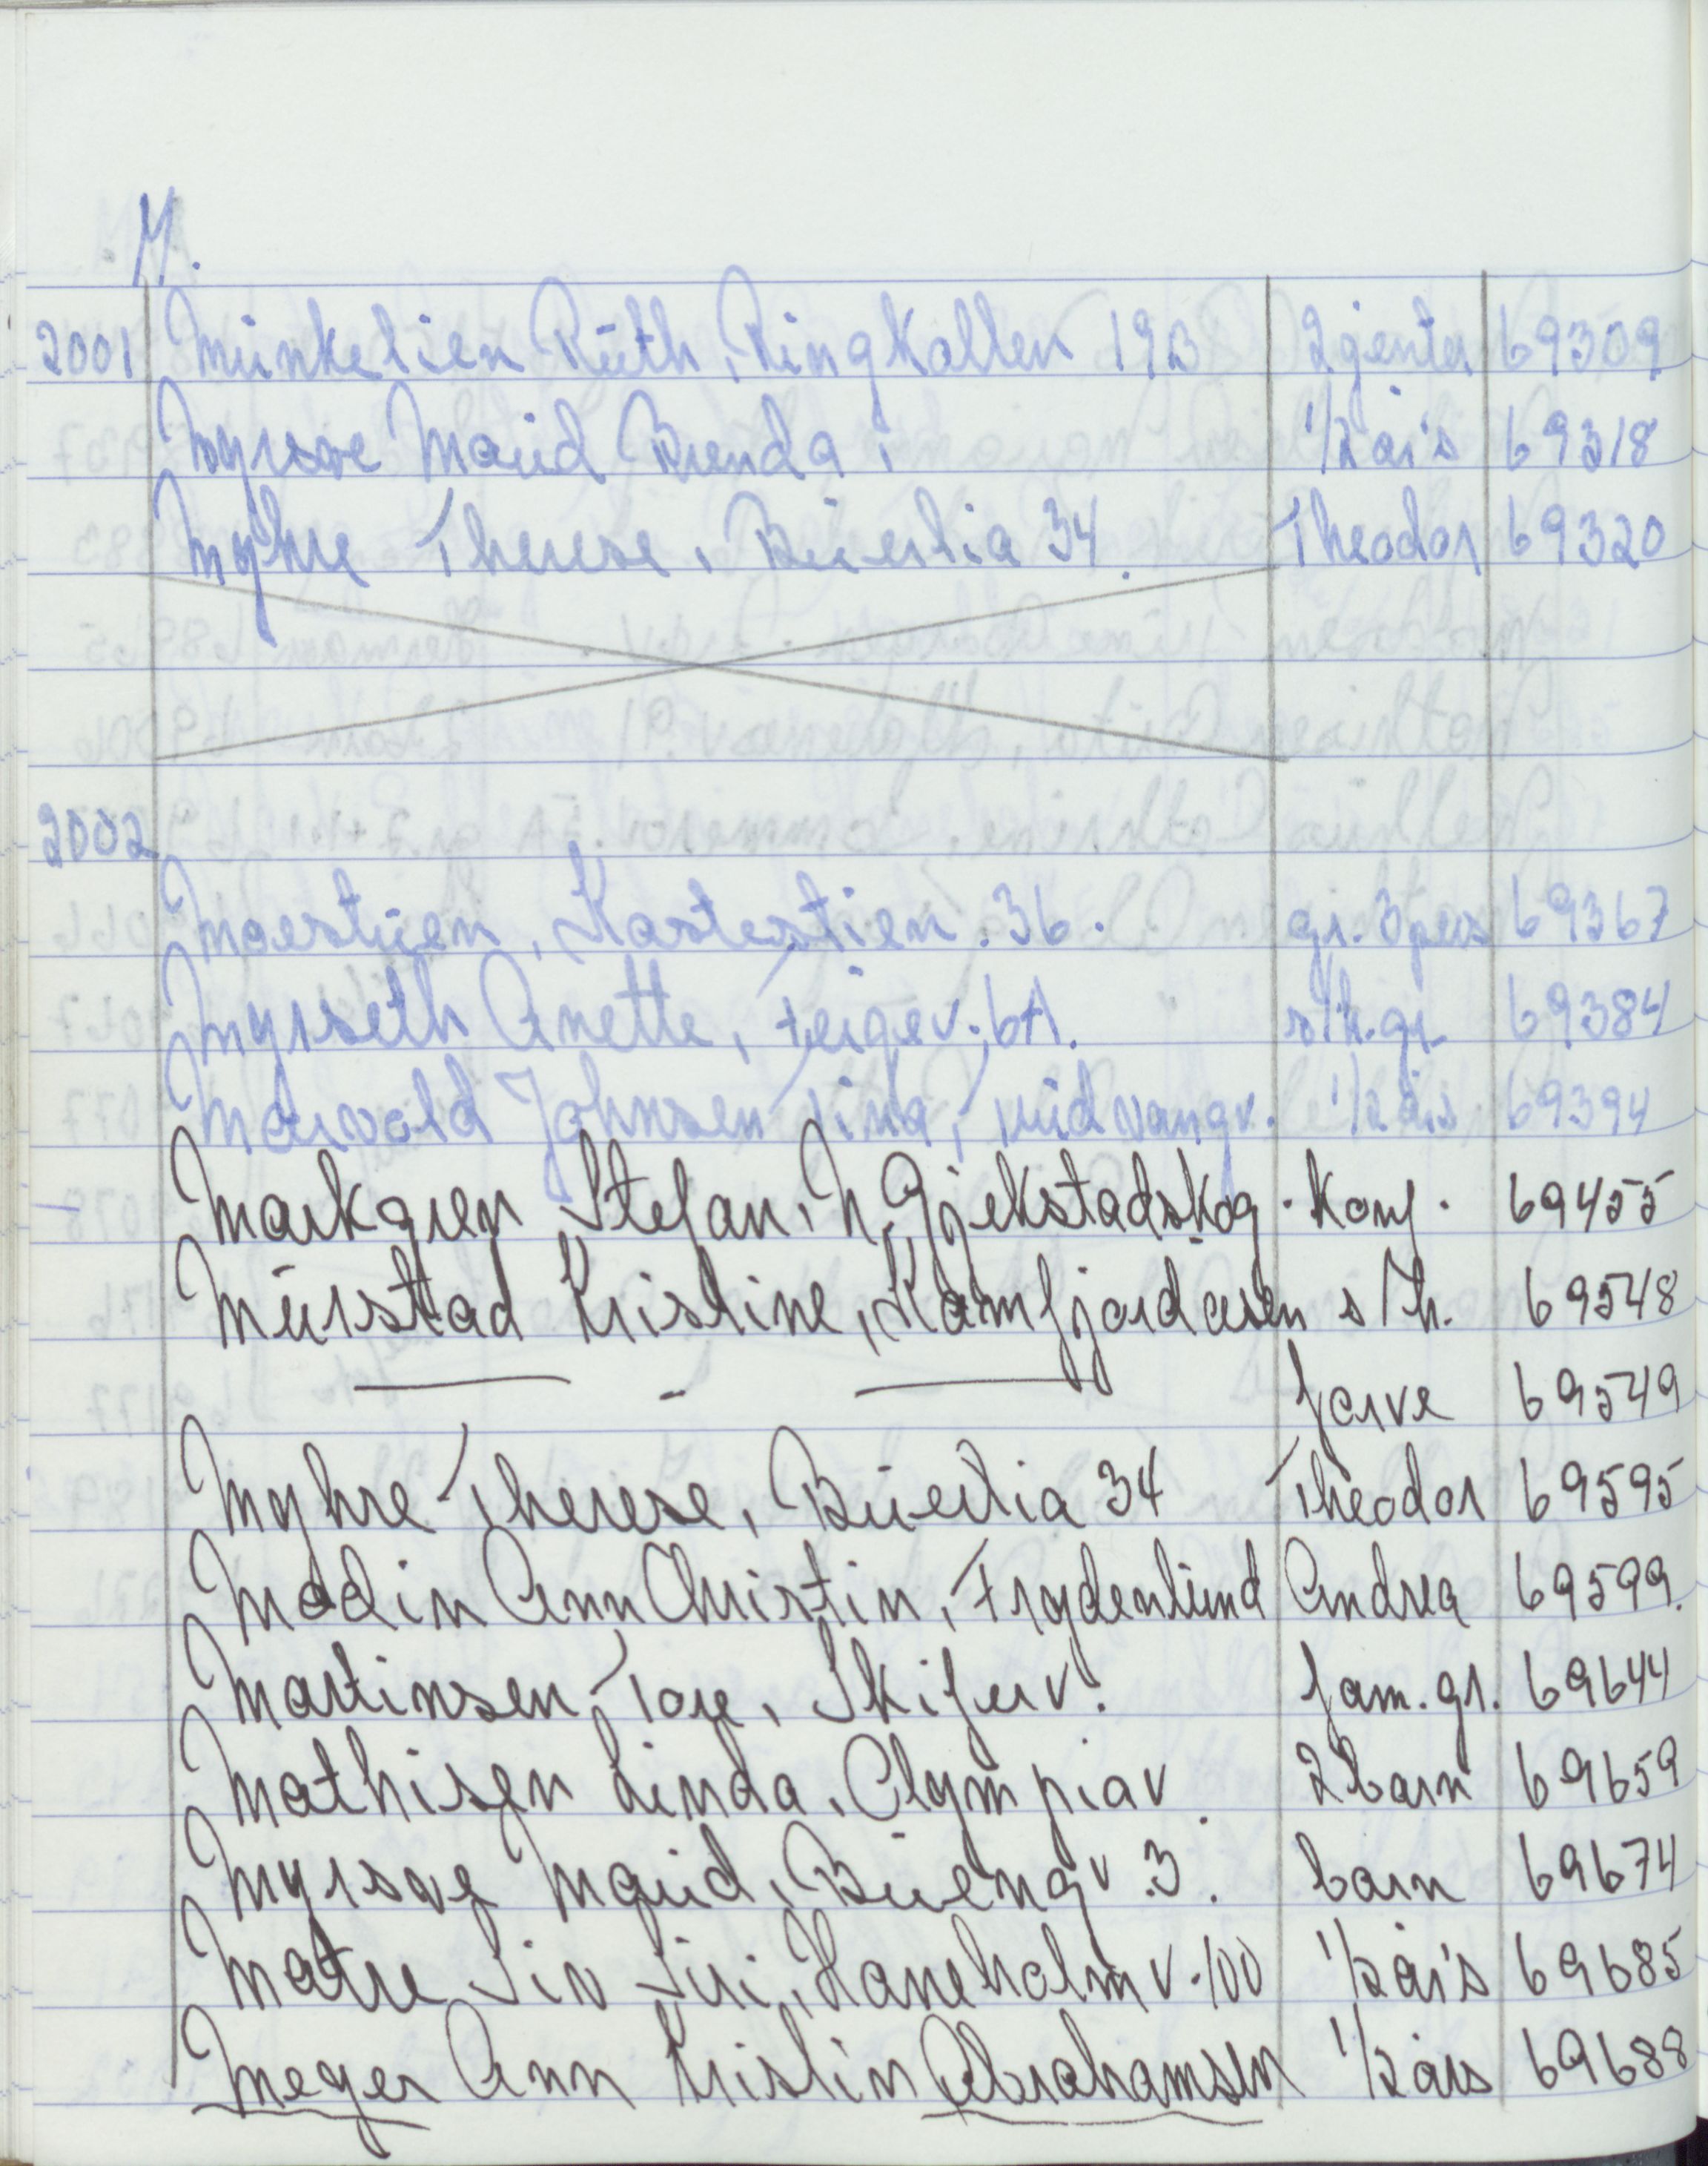 M.
2001 Munkelien Ruth, Ringkollen 19B 2 jenter 69309
Myrsve Maud Brenda, 1/2 års 69318
Myhre Therese, Buerlia 34. Theodor 69320
2002
Moestuen, Kastestien. 36. gr. 3 pers 69367
Myrseth Anette, Feigev. 6A. s/h. gr. 69384
Marvold Johnsen Tina, Midvangv. 1/2 års 69394
Markgren Stefan, N. Gjekstadskog. konf. 69455
Murstad Kristine, Kamfjordåsen s/h. 69548
— " — farve 69549
Myhre Therese, Buerlia 34 Theodor 69595
Modin Ann Christin, Frydenlund Andrea 69599.
Martinsen Tore, Skiferv. fam. gr. 69644
Mathisen Linda, Olympiav. 2 barn 69659
Myrsve Maud, Buengv. 3. barn 69674
Matre Siv Siri, Haneholmv. 100 1/2 års 69685
Meyer Ann Kristin Abrahamsen 1/2 års 69688